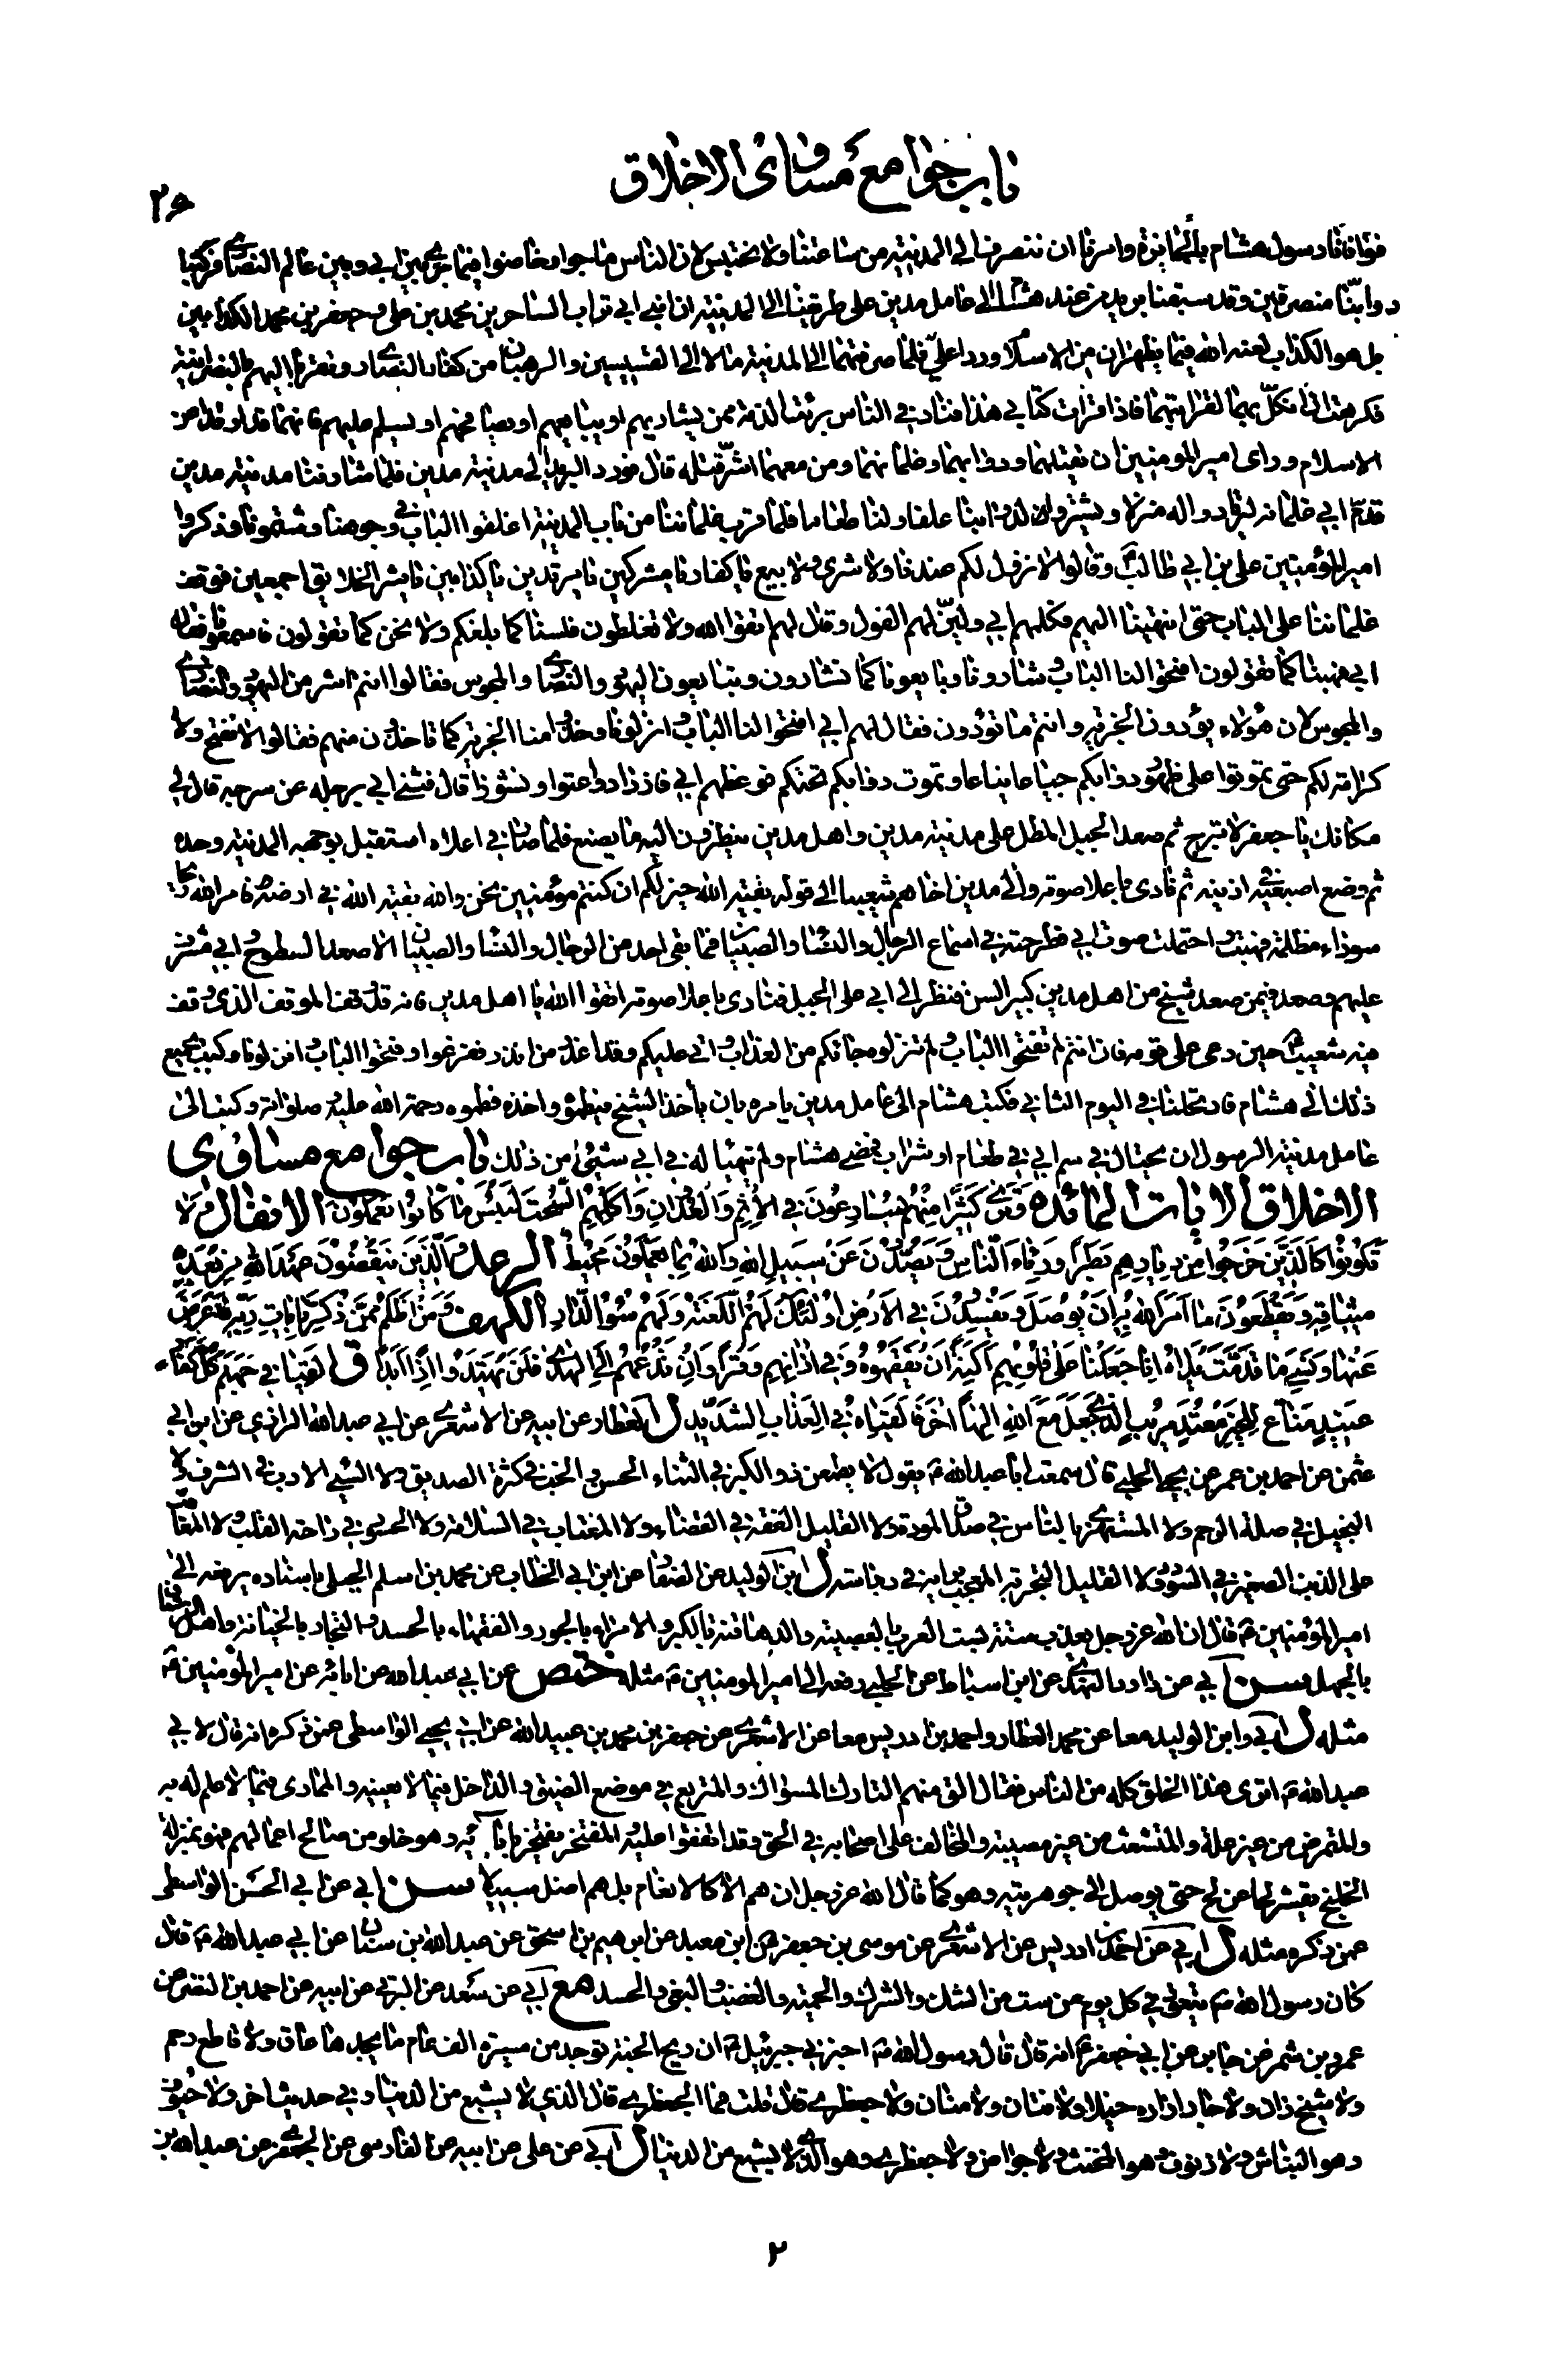 باب جوامع مساوى الاخلاق
٢٦
فوافانا رسول هشام بالجائزة وامرنا ان ننصرف الى المدينة من ساعتنا ولا نحتبس لان الناس ماجوا وخاضوا فيما جرى بين ابي وبين عالم النصارى فركبنا
دوابّنا منصرفين وقد سبقنا بريد من عند هشام الى عامل مدين على طريقنا الى المدينة ان ابني ابي تراب الساحرين محمد بن على وجعفر بن محمد الكذابين
بل هو الكذاب لعنه الله فيما يظهران من الاسلام وردا عليّ فلما صرفتهما الى المدينة مالا الى القسيسين والرهبان من كفار النصارى وتقربا اليهم بالنصرانية
فكرهت ان انكّل بهما لقرابتهما فاذا قرات كتابي هذا فناد في الناس برئت الذمة ممن يشاريهم او يبايعهم او يصافحهم او يسلم عليهم فانهما قد ارتدا عن
الاسلام وراى امير المومنين ان يقتلهما ودوابهما وغلمانهما ومن معهما اشرّ قتلة قال فورد البريد الى مدينة مدين فلما شارفنا مدينة مدين
قدّم ابي غلمانه ليرتادوا له منزلا ويشتروا لدوابنا علفا ولنا طعاما فلما قرب غلماننا من باب المدينة اغلقوا الباب في وجوهنا وشتمونا وذكروا
امير المؤمنين على بن ابي طالب ؑ وقالوا لا نزول لكم عندنا ولا شرى ولا بيع يا كفار يا مشركين يا مرتدين يا كذابين يا شر الخلايق اجمعين فوقف
غلماننا على الباب حتى انتهينا اليهم فكلمهم ابي وليّن لهم القول وقال لهم اتقوا الله ولا تغلطون فلسنا كما بلغكم ولا نحن كما تقولون فاسمعونا فقال لهم
ابي فهبنا كما تقولون افتحوا لنا الباب وشارونا وبايعونا كما تشارون وتبايعون اليهود والنصارى والمجوس فقالوا انتم اشر من اليهود والنصارى
والمجوس لان هؤلاء يؤدون الجزية وانتم ما تؤدون فقال لهم ابي افتحوا لنا الباب وانزلونا وخذوا منا الجزية كما تاخذون منهم فقالوا لا نفتح ولا
كرامة لكم حتى تموتوا على ظهور دوابكم جياعا نياعا وتموت دوابكم تحتكم فوعظهم ابي فازدادوا عتوا ونشوزا قال فثنى ابي برجله عن سرجه قال لي
مكانك يا جعفر لا تبرح ثم صعد الجبل المطل على مدينة مدين واهل مدين ينظرون اليه ما يصنع فلما صار في اعلاه استقبل بوجهه المدينة وحده
ثم وضع اصبعيه في اذنيه ثم نادى باعلا صوته والى مدين اخاهم شعيبا الى قوله بقية الله خير لكم ان كنتم مؤمنين نحن والله بقية الله في ارضه فامر الله ريحا
سوداء مظلمة فهبت واحتملت صوت ابي فطرحته في اسماع الرجال والنساء والصبيان فما بقي احد من الرجال والنساء والصبيان الا صعد السطوح وابي مشرف
عليهم وصعد فيمن صعد شيخ من اهل مدين كبير السن فنظر الى ابي على الجبل فنادى باعلا صوته اتقوا الله يا اهل مدين فانه قد وقف الموقف الذى وقف
فيه شعيب ؑ حين دعى على قومه فان انتم لم تفتحوا الباب ولم تنزلوه جائكم من العذاب واتى عليكم وقد اعذر من انذر ففزعوا وفتحوا الباب وانزلونا وكتب بجميع
ذلك الى هشام فارتحلنا في اليوم الثاني فكتب هشام الى عامل مدين يامره بان يأخذ الشيخ فيطمره فاخذه فطمروه رحمة الله عليه وصلواته وكتب الى
عامل مدينة الرسول ان يحتال في سم ابي في طعام او شراب فمضى هشام ولم يتهيا له في ابي شيئ من ذلك باب جوامع مساوى
الاخلاق الايات المائده وَتَرى كَثِيرًا مِنْهُمْ يُسَارِعُونَ فِي الْاِثْمِ وَالْعُدْوَانِ وَاَكْلِهِمُ السُّحْتَ لَبِئْسَ مَا كَانُوا يَعْمَلُونَ الانفال وَلَا
تَكُونُوا كَالَّذِينَ خَرَجُوا مِنْ دِيَارِهِمْ بَطَرًا وَرِئَاءَ النَّاسِ وَيَصُدُّونَ عَنْ سَبِيلِ اللهِ وَاللهُ بِمَا يَعْمَلُونَ مُحِيطٌ الرعد وَالَّذِينَ يَنْقُضُونَ عَهْدَ اللهِ مِنْ بَعْدِ
مِيثَاقِهِ وَيَقْطَعُونَ مَا اَمَرَ اللهُ بِهِ اَنْ يُوصَلَ وَيُفْسِدُونَ فِي الْاَرْضِ اُولئِكَ لَهُمُ اللَّعْنَةُ وَلَهُمْ سُوءُ الدَّارِ الكهف وَمَنْ اَظْلَمُ مِمَّنْ ذُكِّرَ بِايَاتِ رَبِّهِ فَاَعْرَضَ
عَنْهَا وَنَسِيَ مَا قَدَّمَتْ يَدَاهُ اِنَّا جَعَلْنَا عَلى قُلُوبِهِمْ اَكِنَّةً اَنْ يَفْقَهُوهُ وَفِي اذَانِهِمْ وَقْرًا وَاِنْ تَدْعُهُمْ اِلَى الْهُدى فَلَنْ يَهْتَدُوا اِذًا اَبَدًا ق اَلْقِيَا فِي جَهَنَّمَ كُلَّ كَفَّارٍ
عَنِيدٍ مَنَّاعٍ لِلْخَيْرِ مُعْتَدٍ مُرِيبٍ الَّذِي جَعَلَ مَعَ اللهِ اِلهًا اخَرَ فَاَلْقِيَاهُ فِي الْعَذَابِ الشَّدِيدِ ل العطار عن ابيه عن الاشعري عن ابي عبد الله الرازي عن ابن ابي
عثمن عن احمد بن عمر عن يحيى الحلبي قال سمعت ابا عبد الله ؑ يقول لا يطمعن ذو الكبر في الثناء الحسن ولا الخب في كثرة الصديق ولا السيئ الادب في الشرف ولا
البخيل في صلة الرحم ولا المستهزئ بالناس في صدق المودة ولا القليل الفقه في القضاء ولا المغتاب في السلامة ولا الحسود في راحة القلب ولا المعاقب
على الذنب الصغير في السؤدد ولا القليل التجربة المعجب برايه في رياسة ل ابن الوليد عن الصفار عن ابن ابي الخطاب عن محمد بن اسلم الجبلي باسناده يرفعه الى
امير المؤمنين ؑ قال ان الله عز وجل يعذب ستة بستة العرب بالعصبية والدهاقنة بالكبر والامراء بالجور والفقهاء بالحسد والتجار بالخيانة واهل الرستاق
بالجهل سن ابي عن داود النهدي عن ابن اسباط عن الحلبي رفعه الى امير المومنين ؑ مثله ختص عن ابي عبد الله عن ابائه عن امير المؤمنين ؑ
مثله ل ابي وابن الوليد معا عن محمد العطار واحمد بن ادريس معا عن الاشعري عن جعفر بن محمد بن عبيد الله عن ابي يحيى الواسطى عمن ذكره انه قال لابي
عبد الله ؑ اترى هذا الخلق كله من الناس فقال الق منهم التارك للسواك والمتربع في موضع الضيق والداخل فيما لا يعنيه والممارى فيما لا علم له به
والمتمرض من غير علة والمتشعث من غير مصيبة والمخالف على اصحابه في الحق وقد اتفقوا عليه والمفتخر يفتخر بابائه وهو خلو من صالح اعمالهم فهو بمنزلة
الخلنج يقشر لحا عن لحا حتى يوصل الى جوهريته وهو كما قال الله عز وجل ان هم الا كالانعام بل هم اضل سبيلا سن ابي عن ابي الحسن الواسطى
عمن ذكره مثله ل ابي عن احمد بن ادريس عن الاشعري عن موسى بن جعفر عن ابن معبد عن ابرهيم بن اسحق عن عبد الله بن سنان عن ابي عبد الله ؑ قال
كان رسول الله ص يتعوذ في كل يوم من ست من الشك والشرك والحمية والغضب والبغى والحسد مع ابي عن سعد عن البرقي عن ابيه عن احمد بن النضر عن
عمرو بن شمر عن جابر عن ابي جعفر ؑ انه قال قال رسول الله ص اخبرني جبرئيل ؑ ان ريح الجنة توجد من مسيرة الف عام ما يجدها عاق ولا قاطع رحم
ولا شيخ زان ولا جار ازاره خيلاء ولا فتان ولا منان ولا جعظري قال قلت فما الجعظري قال الذي لا يشبع من الدنيا وفي حديث اخر ولا حيوف
وهو النباش ولا زنوق وهو المخنث ولا جواض ولا جعظري وهو الذي لا يشبع من الدنيا ل ابي عن على عن ابيه عن الفارسى عن الجعفري عن عبد الله بن
٢